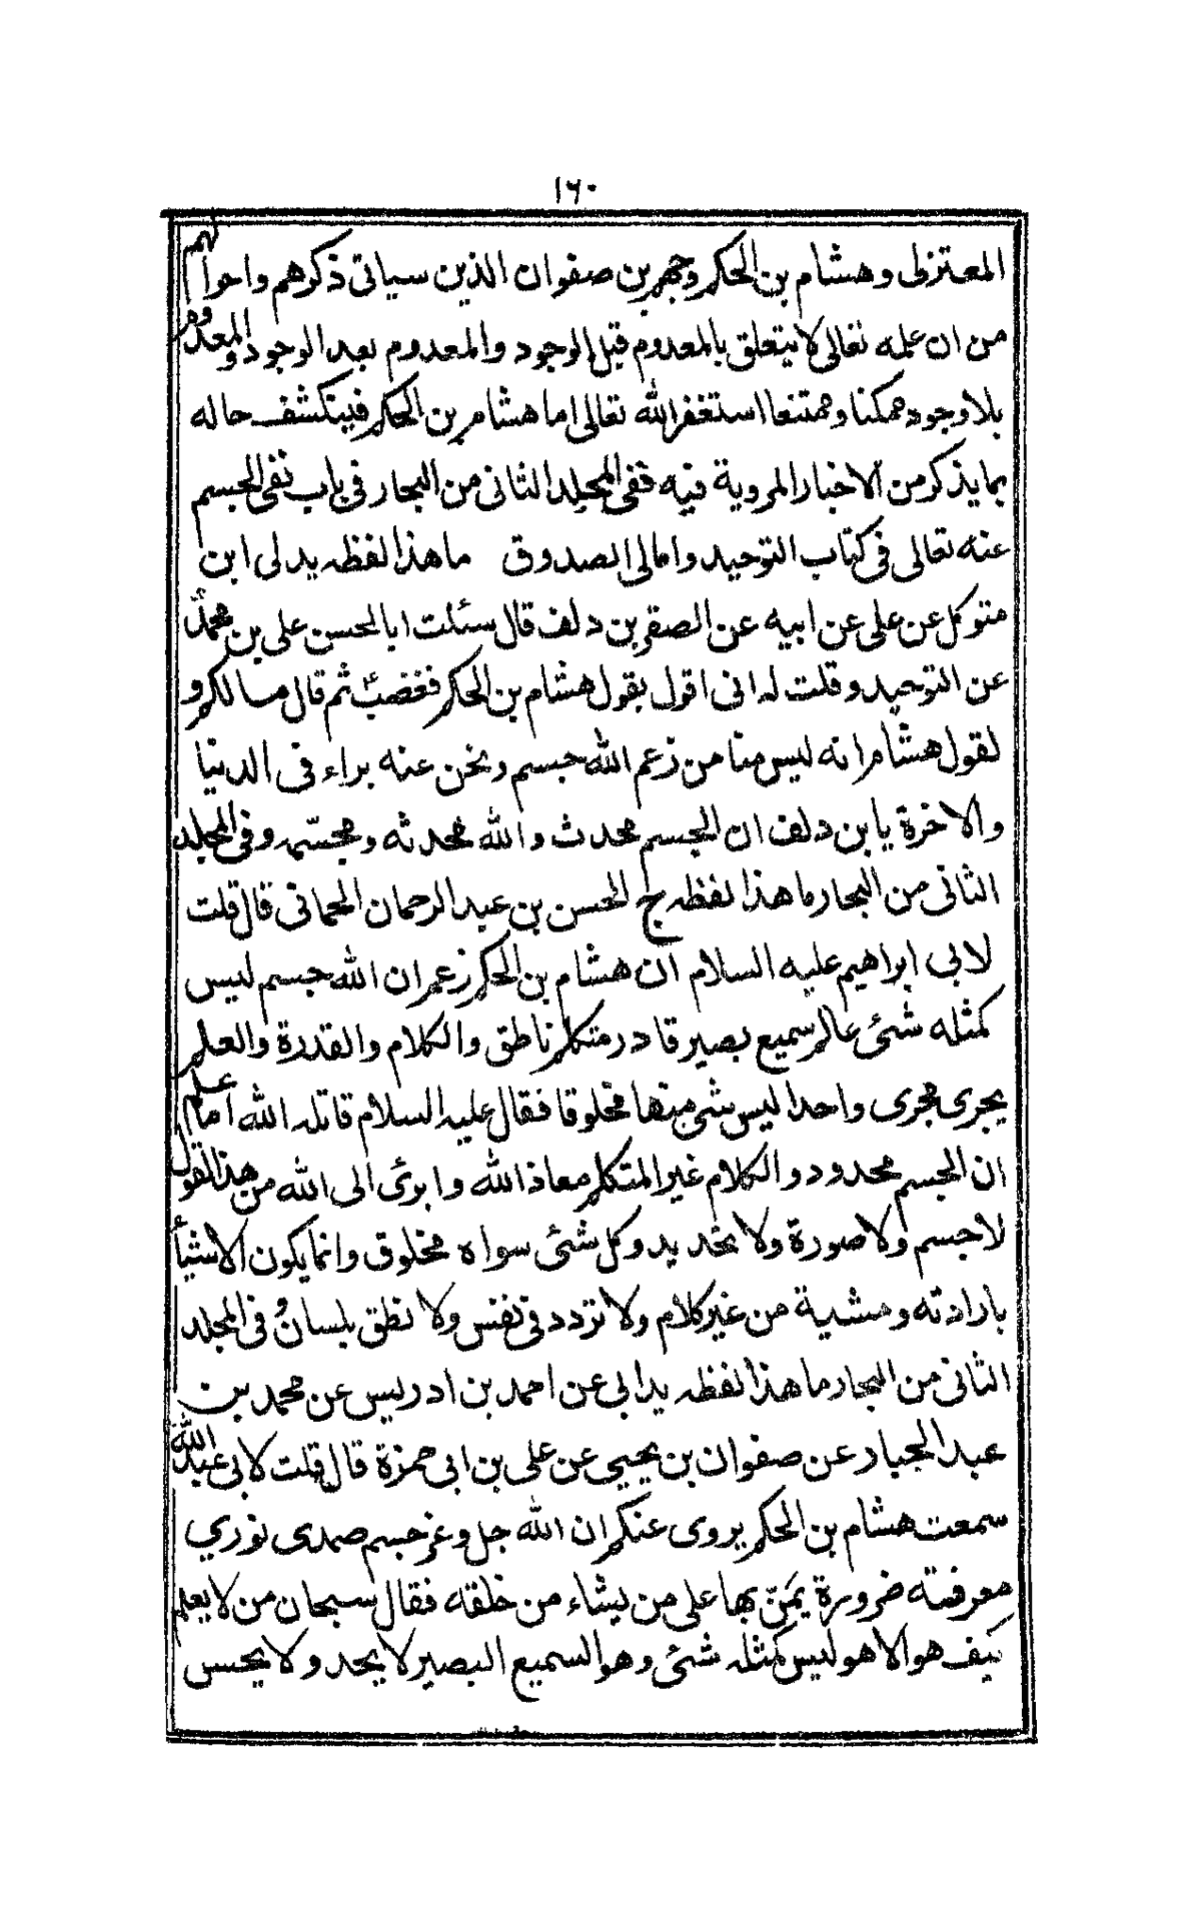 ١٦٠
المعتزلى وهشام بن الحكم وجهم بن صفوان الذين سياتى ذكرهم واحزابهم
من ان علمه تعالى لا يتعلق بالمعدوم قبل الوجود والمعدوم بعد الوجود والمعدوم
بلا وجود ممكنا وممتنعا استغفر الله تعالى اما هشام بن الحكم فينكشف حاله
بما يذكر من الاخبار المروية فيه ففى المجلد الثانى من البحار فى باب نفى الجسم
عنه تعالى فى كتاب التوحيد وامالى الصدوق ما هذا لفظه يد لى ابن
متوكل عن على عن ابيه عن الصقر بن دلف قال سئلت ابا الحسن على بن محمد
عن التوحيد وقلت له انى اقول بقول هشام بن الحكم فغضب ثم قال مالكم و
لقول هشام انه ليس منا من زعم الله جسم ونحن عنه براء فى الدنيا
والاخرة يا بن دلف ان الجسم محدث والله محدثه ومجسّمه وفى المجلد
الثانى من البحار ما هذا لفظه ج الحسن بن عبد الرحمان الحمانى قال قلت
لابى ابراهيم عليه السلام ان هشام بن الحكم زعم ان الله جسم ليس
كمثله شئ عالم سميع بصير قادر متكلم ناطق والكلام والقدرة والعلم
يجرى مجرى واحدا ليس شئ منها مخلوقا فقال عليه السلام قاتله الله اما علم
ان الجسم محدود والكلام غير المتكلم معاذ الله وابرئ الى الله من هذا القول
لا جسم ولا صورة ولا تحديد وكل شئ سواه مخلوق وانما يكون الاشياء
بارادته ومشية من غير كلام ولا تردد فى نفس ولا نطق بلسان وفى المجلد
الثانى من البحار ما هذا لفظه يد ابى عن احمد بن ادريس عن محمد بن
عبد الجبار عن صفوان بن يحيى عن على بن ابى حمزة قال قلت لابى عبد الله
سمعت هشام بن الحكم يروى عنكم ان الله جل وعز جسم صمدى نوري
معرفته ضرورة يَمنّ بها على من يشاء من خلقه فقال سبحان من لا يعلم
كيف هو الا هو ليس كمثله شئ وهو السميع البصير لا يحد ولا يحس